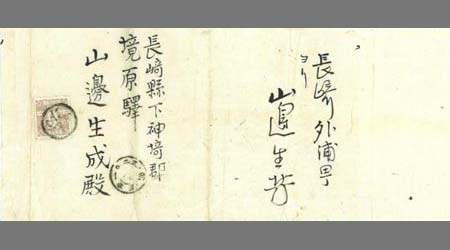 長崎外浦町
ヨリ
山邉生
長崎縣下神埼郡
境原驛
山邊生成殿